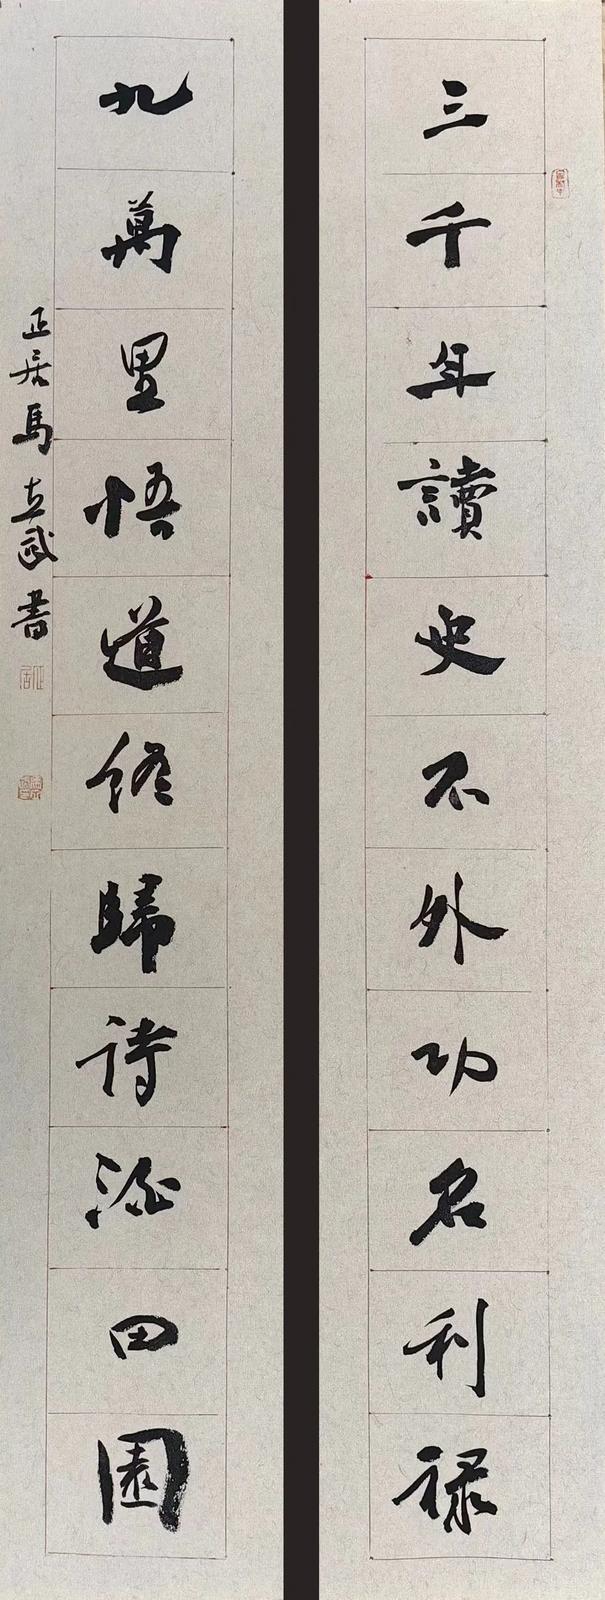 三千年讀史不外功名利祿
九萬里悟道終歸詩酒田園
正居馬立武書